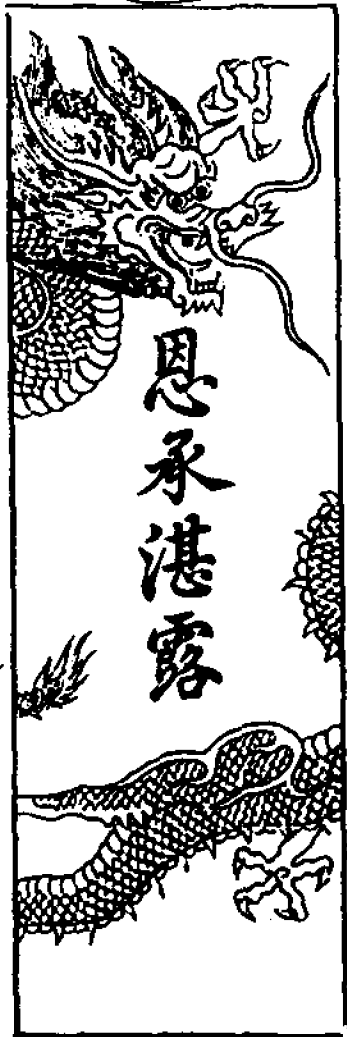 恩承湛露